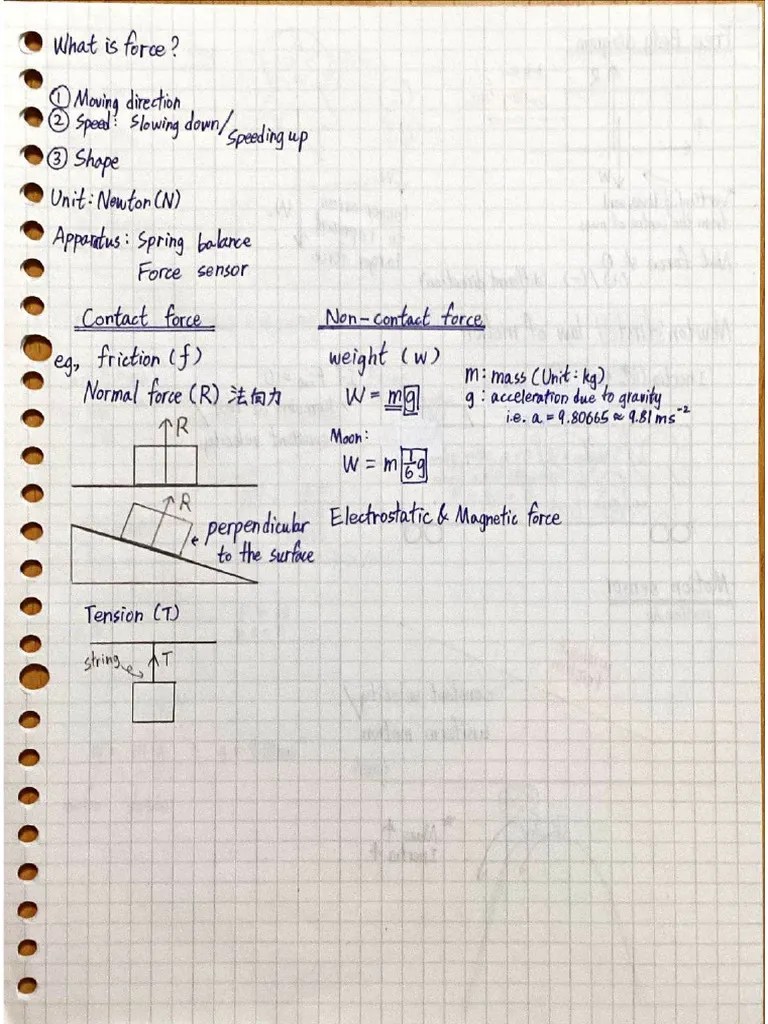 What is force?
① Moving direction
② Speed: Slowing down/Speeding up
③ Shape
Unit: Newton (N)
Apparatus: Spring balance
Force sensor
Contact force
eg, friction (f)
Normal force (R) 法向力
R
R
perpendicular
to the surface
Tension (T)
string
T
Non-contact force
weight (w)
W = mg
m: mass (Unit: kg)
g: acceleration due to gravity
i.e. a = 9.80665 ≈ 9.81 ms⁻²
Moon:
W = m 1/6 g
Electrostatic & Magnetic force